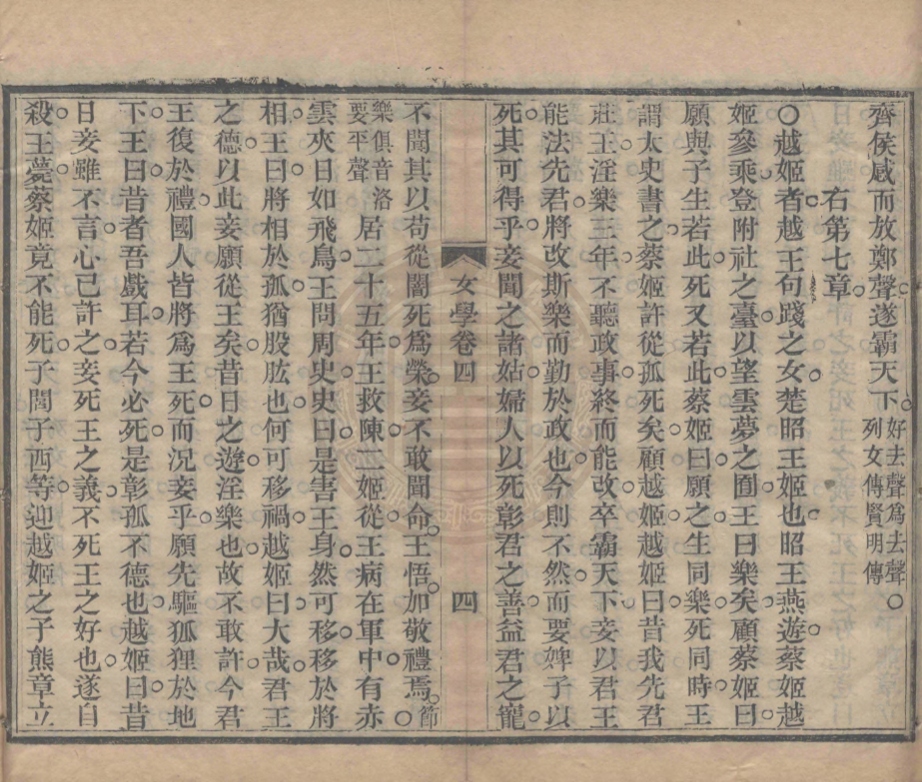 齊侯感而放鄭聲遂霸天下好去聲爲去聲○列女傳賢明傳
右第七章
○越姬者越王句踐之女楚昭王姬也昭王燕遊蔡姬越
姬參乘登附社之臺以望雲夢之囿王曰樂矣顧蔡姬曰
願與子生若此死又若此蔡姬曰願之生同樂死同時王
謂太史書之蔡姬許從孤死矣顧越姬越姬曰昔我先君
莊王淫樂三年不聽政事終而能改卒霸天下妾以君王
能法先君將改斯樂而勤於政也今則不然而要婢子以
死其可得乎妾聞之諸姑婦人以死彰君之善益君之寵
女學卷四
四
不聞其以苟從闇死爲榮妾不敢聞命王悟加敬禮焉節○
樂俱音洛要平聲居二十五年王救陳二姬從王病在軍中有赤
雲夾日如飛鳥王問周史史曰是害王身然可移移於將
相王曰將相於孤猶股肱也何可移禍越姬曰大哉君王
之德以此妾願從王矣昔日之遊淫樂也故不敢許今君
王復於禮國人皆將爲王死而況妾乎願先驅狐狸於地
下王曰昔者吾戲耳若今必死是彰孤不德也越姬曰昔
日妾雖不言心已許之妾死王之義不死王之好也遂自
殺王薨蔡姬竟不能死子閭子西等迎越姬之子熊章立